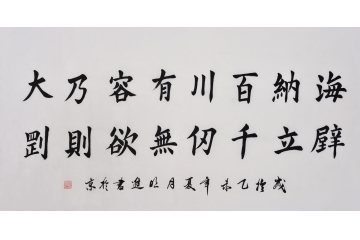 海納百川有容乃大
壁立千仞無欲則剛
乙未年夏月書於京